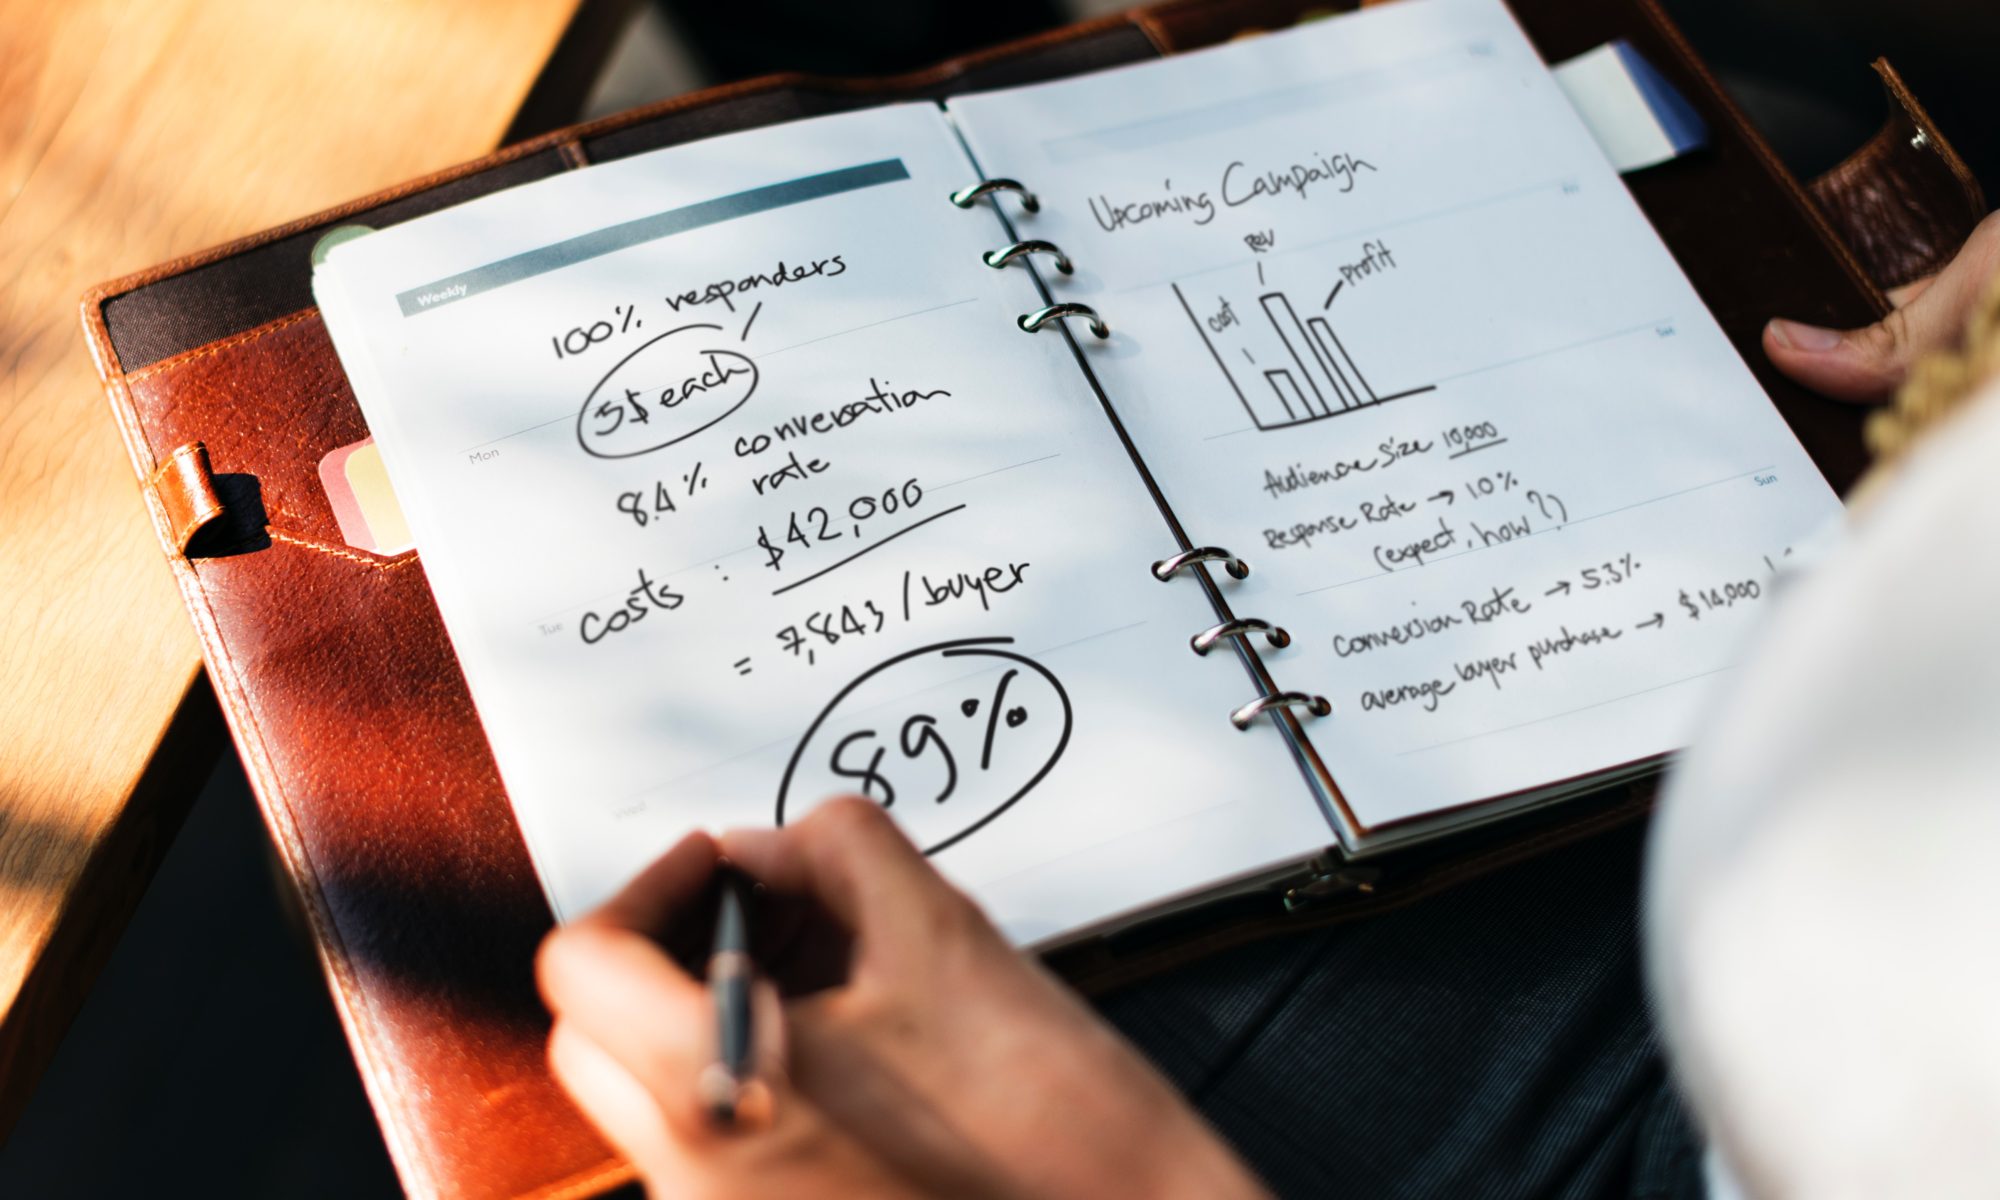 Weekly
100% responders
5$ each
8.4% conversation
rate
costs : $42,000
= 7,843 / buyer
89%
Mon
Tue
Wed
Upcoming Campaign
Rev
Profit
cost
Audience Size 10,000
Response Rate → 1.0%
(expect, how?)
Conversion Rate → 5.3%
average buyer purchase → $14,000
Fri
Sat
Sun